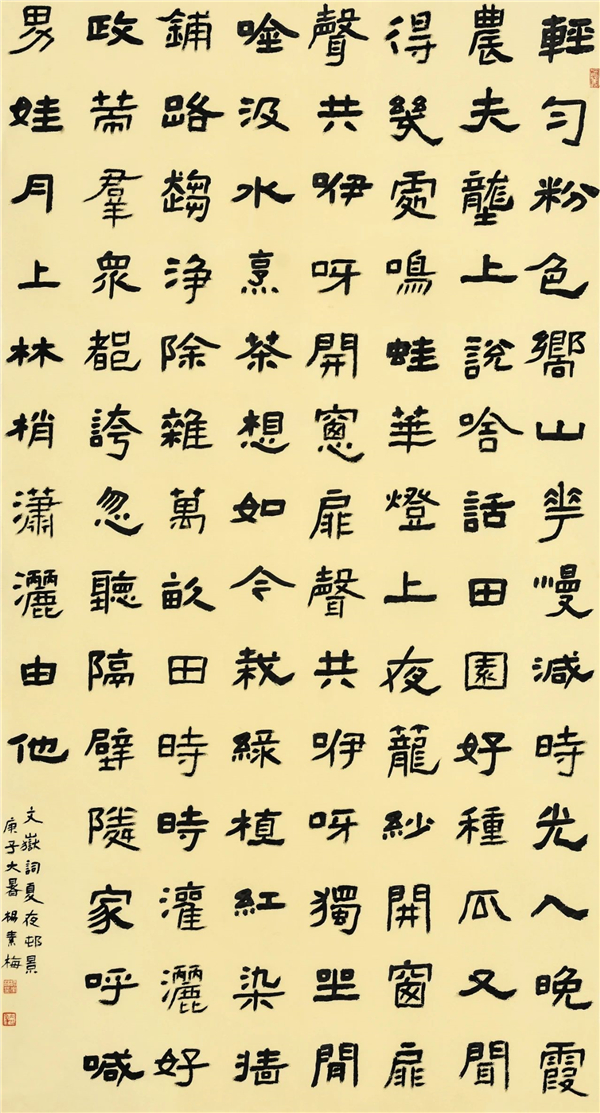 輕勻粉色嚮山花慢減時光入晚霞
農夫壟上說啥話田園好種瓜又聞
得幾處鳴蛙華燈上夜籠紗開窗扉
聲共咿呀開窻扉聲共咿呀獨坐閒
唫汲水烹茶想如今栽綠植紅染牆
鋪路趨淨除雜萬畝田時時灌灑好
政策羣眾都誇忽聽隔壁隣家呼喊
男娃月上林梢瀟灑由他
文嶽詞夏夜邨景
庚子大暑楊素梅